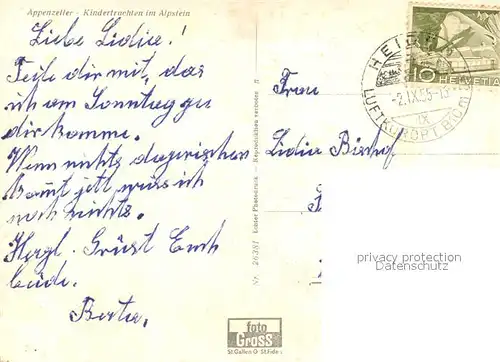 Appenzeller - Kindertrachten im Alpstein
Liebe Lidia!
Teile dir mit, das
ich am Sonntag zu
dir komme.
Wenn nichts dazwischen
kommt jetz weiss ich
noch nichts.
Herzl. Grüst Euch
beide.
Berta.
Frau
Lidia Bischof
HEIDEN
-2.IX.55-13
LUFTKURORT
10 HELVETIA
Nr. 26381 Echter Photodruck - Reproduktion verboten
foto
Gross
St.Gallen O St.Fiden
privacy protection
Datenschutz